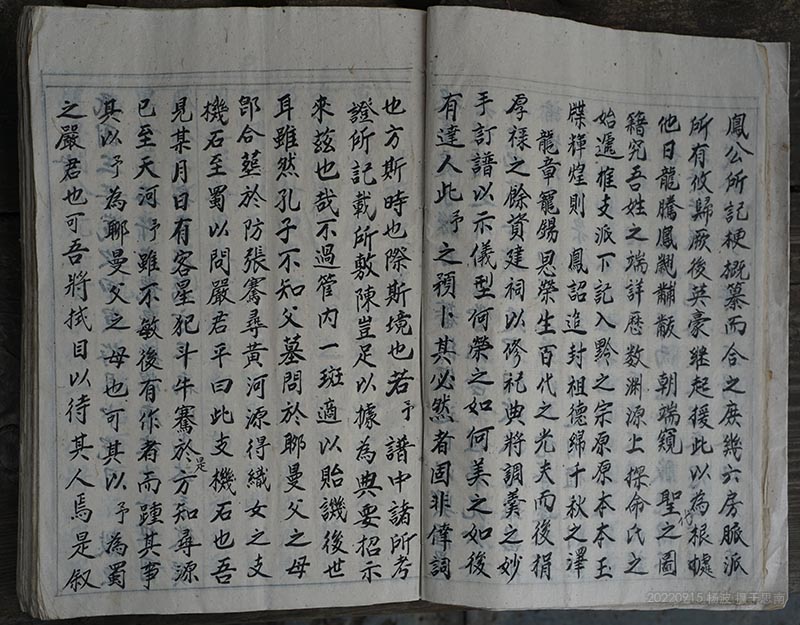 鳳公所記梗概纂而合之庶幾六房脈派
所有攸歸厥後英豪继起援此以為根據
他日龍騰鳳翽黼黻 朝端窺 聖代之圖
籍究吾姓之端詳歷数渊源上探命氏之
始遞推支派下記入黔之宗原原本本玉
牒輝煌則 鳳詔追封祖德綿千秋之澤
龍章寵錫恩榮生百代之光夫而後捐
厚祿之餘資建祠以修祀典將調羹之妙
手訂譜以示儀型何榮之如何美之如後
有達人此予之預卜其必然者固非偉詞
也方斯時也際斯境也若予譜中諸所考
證所記載所敷陳豈足以據為典要招示
來茲也哉不過管內一斑適以貽譏後世
耳雖然孔子不知父墓問於郰曼父之母
郎合塟於防張騫尋黄河源得織女之支
機石至蜀以問嚴君平曰此支機石也吾
見某月日有客星犯斗牛騫於是方知尋源
已至天河予雖不敏後有作者而踵其事
其以予為郰曼父之母也可其以予為蜀
之嚴君也可吾將拭目以待其人焉是叙
20220915 杨波 摄于思南